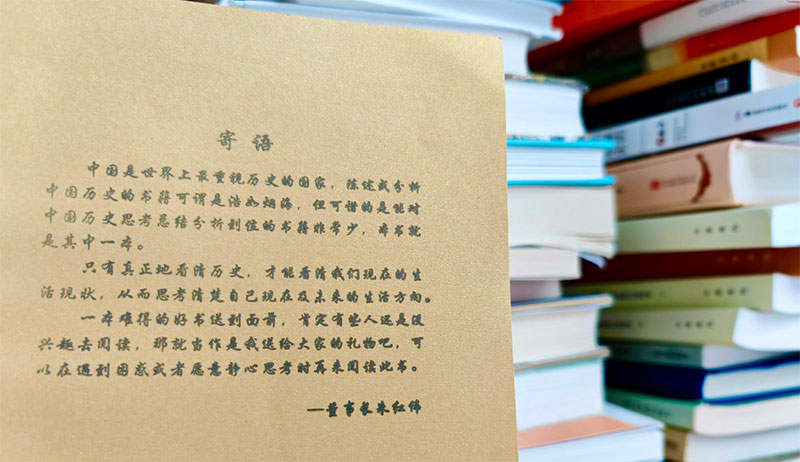 寄语
中国是世界上最重视历史的国家，陈述或分析
中国历史的书籍可谓是浩如烟海，但可惜的是能对
中国历史思考总结分析到位的书籍非常少，本书就
是其中一本。
只有真正地看清历史，才能看清我们现在的生
活现状，从而思考清楚自己现在及未来的生活方向。
一本难得的好书送到面前，肯定有些人还是没
兴趣去阅读，那就当作是我送给大家的礼物吧，可
以在遇到困惑或者愿意静心思考时再来阅读此书。
—董事长朱红伟